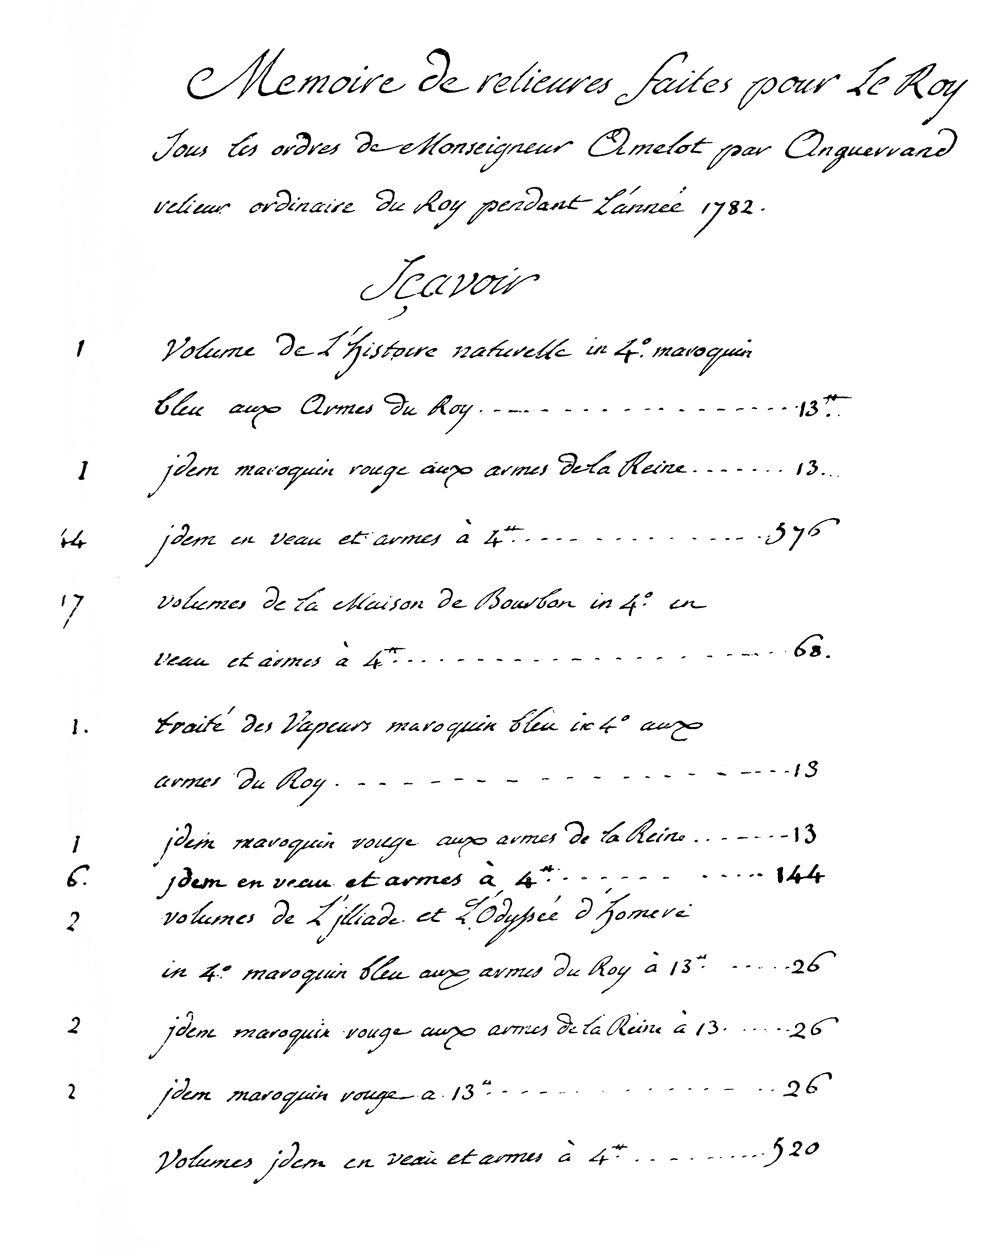 Memoire de relieures faites pour Le Roy
Sous les ordres de Monseigneur Amelot par Anguerrand
relieur ordinaire du Roy pendant L'année 1782.
Sçavoir
1 Volume de L'histoire naturelle in 4.º maroquin
bleu aux Armes du Roy 13.tt
1 jdem maroquin rouge aux armes de la Reine 13
44 jdem en veau et armes à 4tt 576
17 volumes de la Maison de Bourbon in 4.º en
veau et armes à 4tt 68.
1. traité des Vapeurs maroquin bleu in 4º aux
armes du Roy 13
1 jdem maroquin rouge aux armes de la Reine 13
6. jdem en veau et armes à 4tt 144
2 volumes de L'jlliade et L'Odyssée d'homere
in 4.º maroquin bleu aux armes du Roy à 13tt 26
2 jdem maroquin rouge aux armes de la Reine à 13 26
2 jdem maroquin rouge a 13tt 26
Volumes jdem en veau et armes à 4tt 520